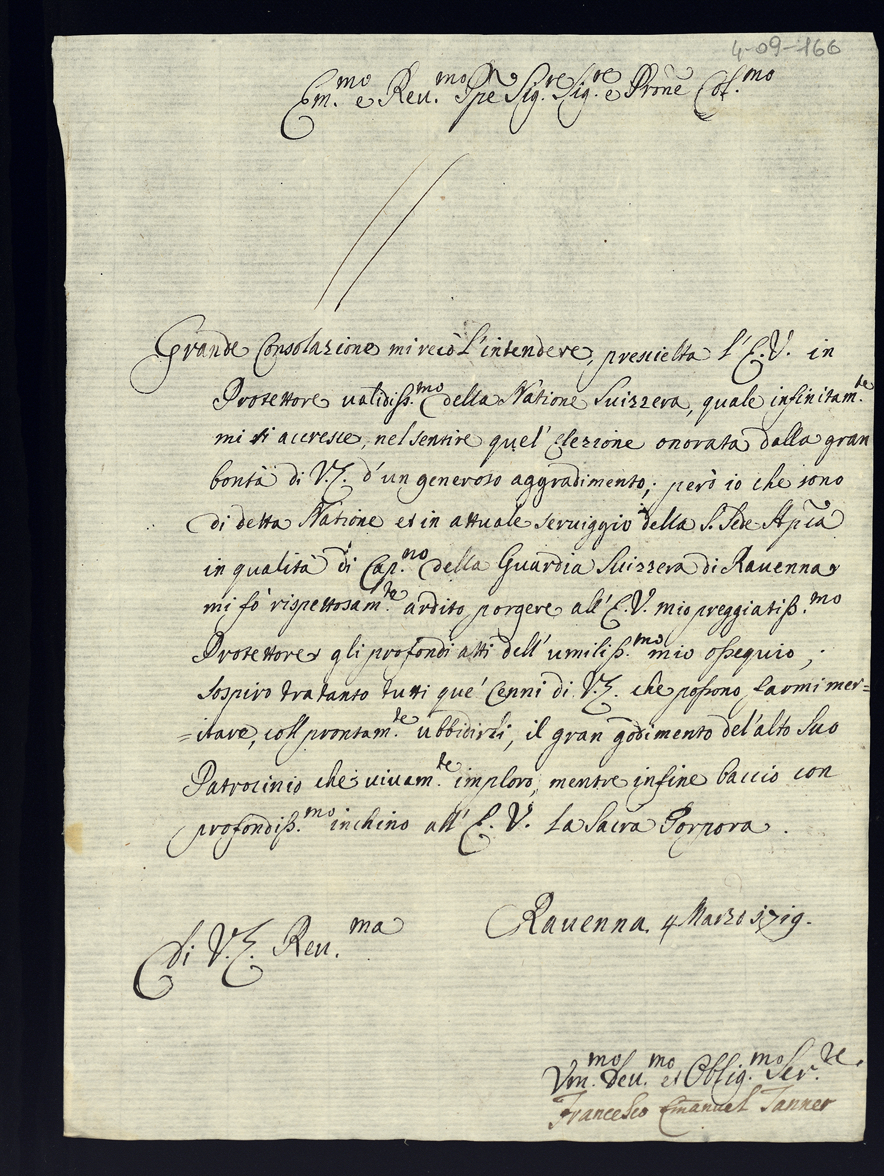 4-09-166
Em.mo e Reu.mo Pñpe Sig.re Sig.re e Prõne Col.mo
Grande Consolazione mi recò l'intendere, prescielta l'E.V. in
Protettore ualidiss.mo della Natione Suizzera, quale infinitam.te
mi si accresce, nel sentire quel' elezione onorata dalla gran
bontà di V.E. d'un generoso aggradimento; però io che sono
di detta Natione et in attuale seruiggio della S. Sede Apc̃a
in qualità di Cap.no della Guardia Suizzera di Rauenna
mi fò rispettosam.te ardito porgere all'E.V. mio preggiatiss.mo
Protettore gli profondi atti dell'umiliss.mo mio ossequio;
sospiro tratanto tutti què cenni di V.E. che possono farmi mer=
=itare, coll prontam.te ubbidirli, il gran godimento del'alto suo
Patrocinio che uiuam.te imploro, mentre infine baccio con
profondiss.mo inchino all'E.V. la Sacra Porpora.
Di V.E. Reu.ma
Rauenna 4 Marzo 1719.
Vm.mo Deu.mo et Oblig.mo Ser.re
Francesco Emanuel Tanner